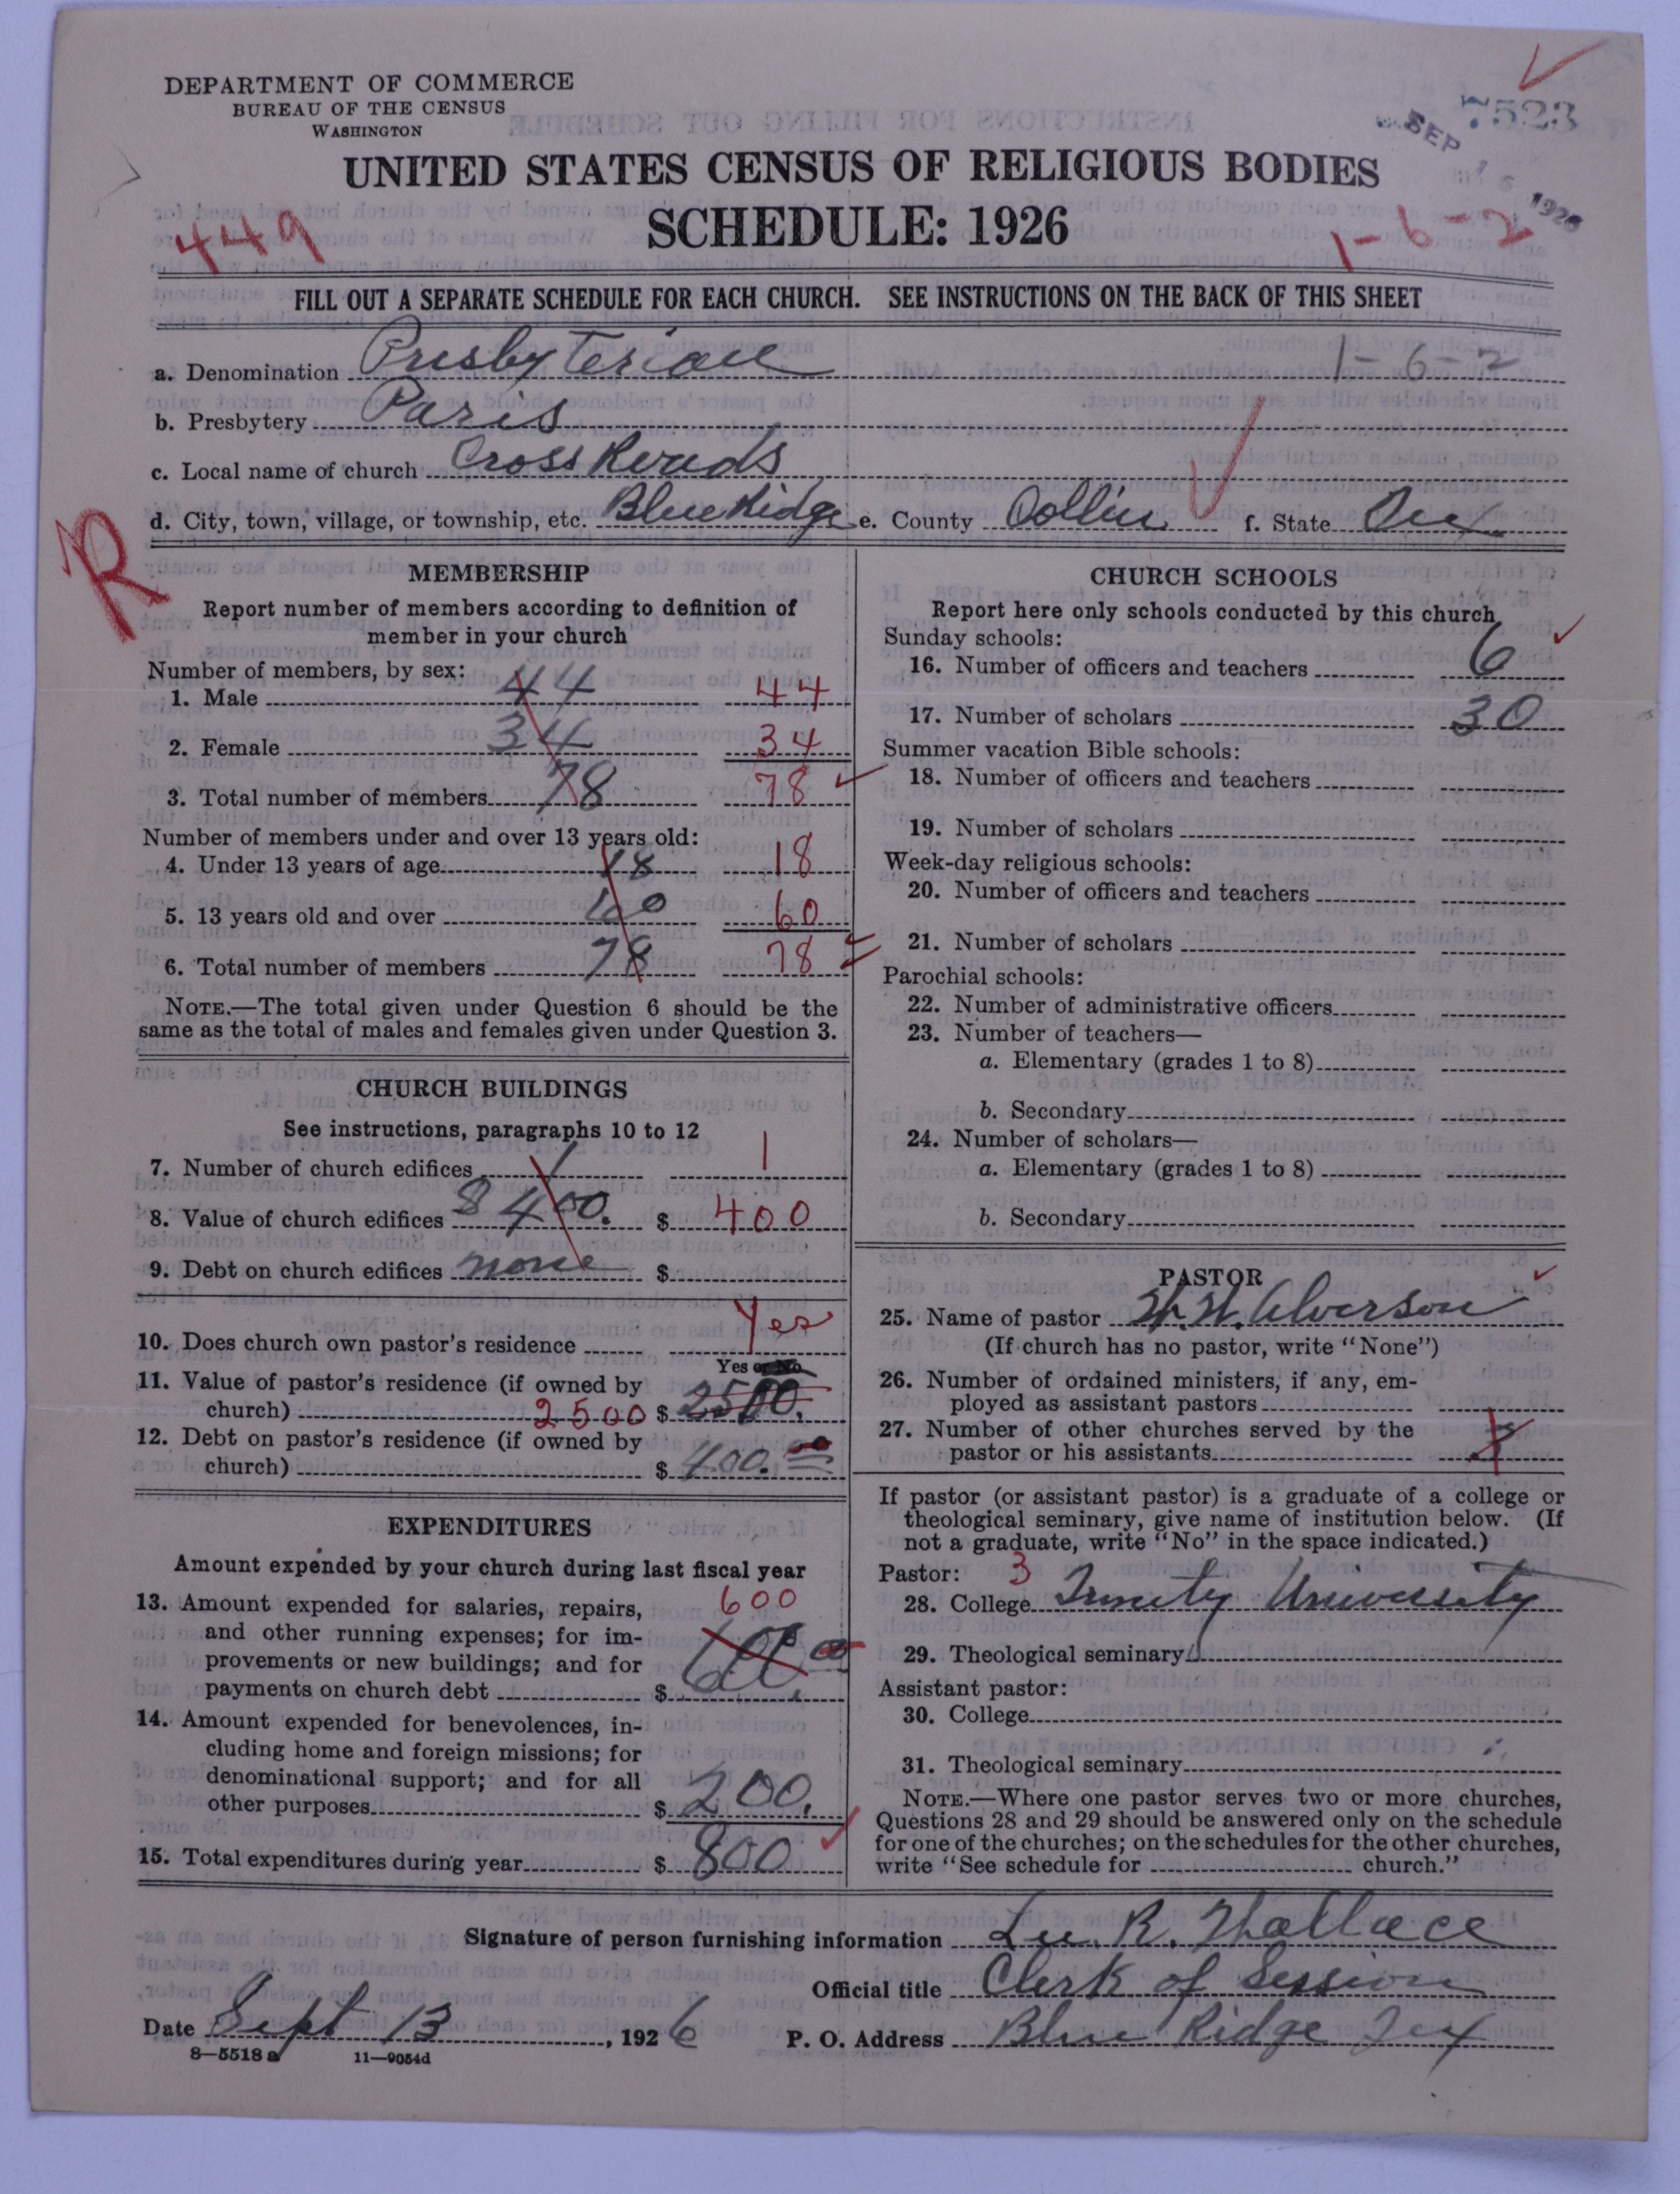 DEPARTMENT OF COMMERCE
BUREAU OF THE CENSUS
WASHINGTON
7523
SEP 1926
UNITED STATES CENSUS OF RELIGIOUS BODIES
SCHEDULE: 1926
449
1-6-2
FILL OUT A SEPARATE SCHEDULE FOR EACH CHURCH. SEE INSTRUCTIONS ON THE BACK OF THIS SHEET
a. Denomination Presbyterian 1-6-2
b. Presbytery Paris
c. Local name of church Cross Roads
d. City, town, village, or township, etc. Blue Ridge e. County Collin f. State Tex
R
MEMBERSHIP
Report number of members according to definition of
member in your church
Number of members, by sex:
1. Male 44 44
2. Female 34 34
3. Total number of members 78 78
Number of members under and over 13 years old:
4. Under 13 years of age 18 18
5. 13 years old and over 60 60
6. Total number of members 78 78
NOTE.—The total given under Question 6 should be the
same as the total of males and females given under Question 3.
CHURCH BUILDINGS
See instructions, paragraphs 10 to 12
7. Number of church edifices 1 1
8. Value of church edifices $400. $ 400
9. Debt on church edifices none $
10. Does church own pastor's residence Yes
Yes or No
11. Value of pastor's residence (if owned by
church) 2500 $ 2500.
12. Debt on pastor's residence (if owned by
church) $ 400.00
EXPENDITURES
Amount expended by your church during last fiscal year
13. Amount expended for salaries, repairs, 600
and other running expenses; for im-
provements or new buildings; and for
payments on church debt $ 600.00
14. Amount expended for benevolences, in-
cluding home and foreign missions; for
denominational support; and for all
other purposes $ 200.
15. Total expenditures during year $ 800
CHURCH SCHOOLS
Report here only schools conducted by this church
Sunday schools:
16. Number of officers and teachers 6
17. Number of scholars 30
Summer vacation Bible schools:
18. Number of officers and teachers
19. Number of scholars
Week-day religious schools:
20. Number of officers and teachers
21. Number of scholars
Parochial schools:
22. Number of administrative officers
23. Number of teachers—
a. Elementary (grades 1 to 8)
b. Secondary
24. Number of scholars—
a. Elementary (grades 1 to 8)
b. Secondary
PASTOR
25. Name of pastor Alverson
(If church has no pastor, write "None")
26. Number of ordained ministers, if any, em-
ployed as assistant pastors
27. Number of other churches served by the
pastor or his assistants
If pastor (or assistant pastor) is a graduate of a college or
theological seminary, give name of institution below. (If
not a graduate, write "No" in the space indicated.)
Pastor: 3
28. College Trinity University
29. Theological seminary
Assistant pastor:
30. College
31. Theological seminary
NOTE.—Where one pastor serves two or more churches,
Questions 28 and 29 should be answered only on the schedule
for one of the churches; on the schedules for the other churches,
write "See schedule for church."
Signature of person furnishing information Lee R. Wallace
Official title Clerk of Session
Date Sept 13, 1926 P. O. Address Blue Ridge Tex
8—5518 a 11—9054d